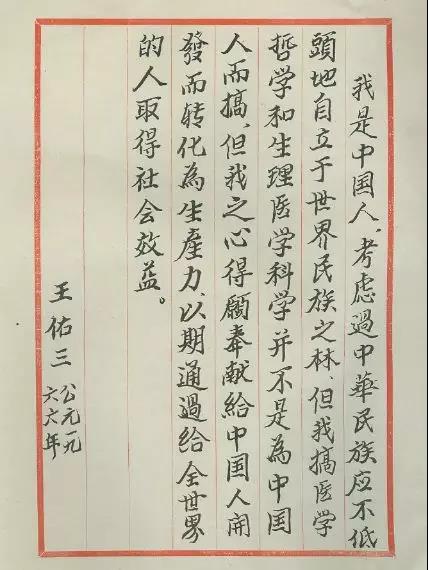 我是中国人、考虑過中華民族应不低
頭地自立于世界民族之林、但我搞医学
哲学和生理医学科学并不是為中国
人而搞、但我之心得願奉献給中国人開
發而转化為生產力、以期通過给全世界
的人取得社会效益。
王佑三
公元一九
六六年